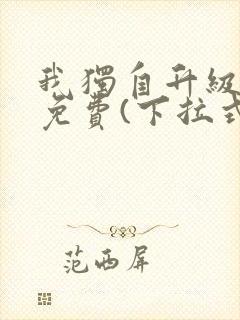 我獨自升級
免費(下拉式
范西屏